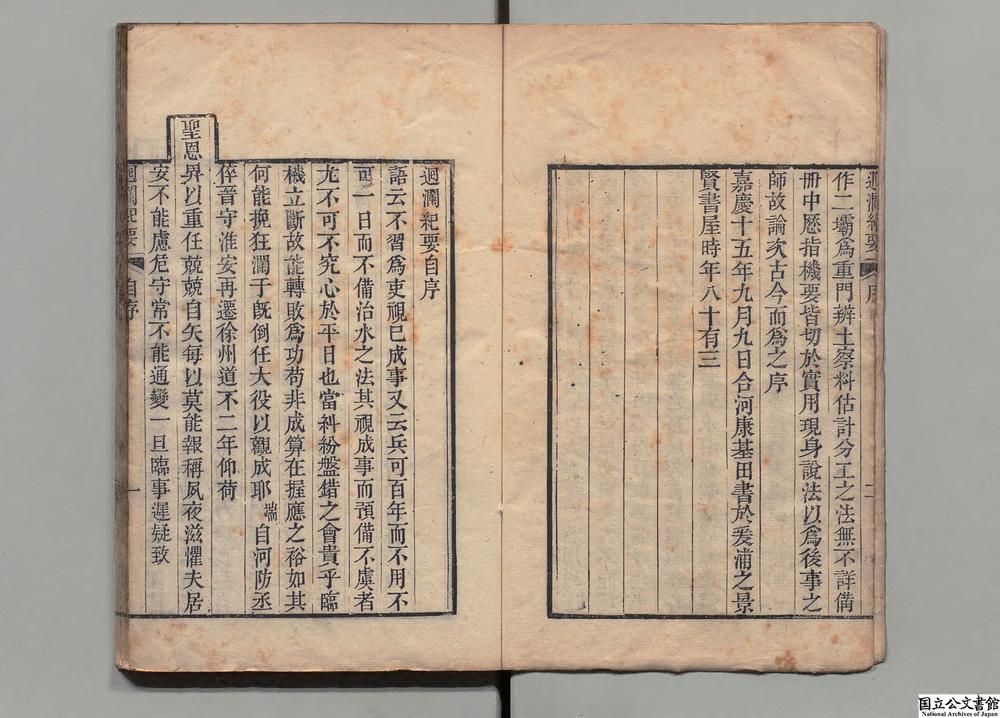 迴瀾紀要
序
二
作二壩爲重門辨土察料估計分工之法無不詳備
冊中歷指機要皆切於實用現身說法以爲後事之
師故論次古今而爲之序
嘉慶十五年九月九日合河康基田書於爰浦之景
賢書屋時年八十有三
迴瀾紀要自序
語云不習爲吏視已成事又云兵可百年而不用不
可一日而不備治水之法其視成事而預備不虞者
尤不可不究心於平日也當糾紛盤錯之會貴乎臨
機立斷故能轉敗爲功苟非成算在握應之裕如其
何能挽狂瀾于旣倒任大役以觀成耶端自河防丞
倅晉守淮安再遷徐州道不二年仰荷
聖恩畀以重任兢兢自矢每以莫能報稱夙夜滋懼夫居
安不能慮危守常不能通變一旦臨事遲疑致
迴瀾紀要
自序
一
国立公文書館
National Archives of Japan